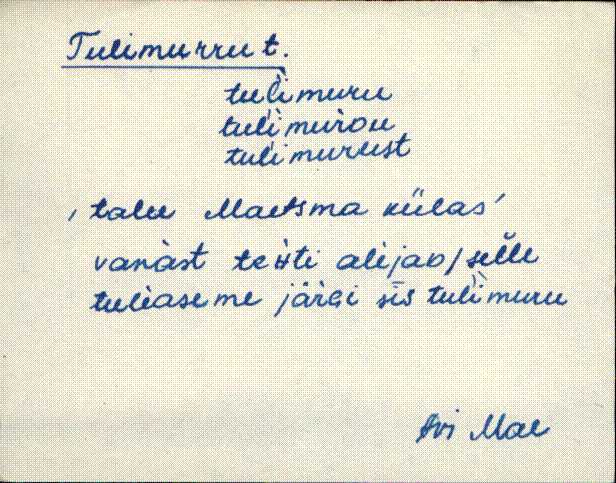 Tulimurru t.
tulimuru
tulimurou
tulimurust
, talu Maetsma külas'
vanàst tehti alèjad / selle
tulèaseme järgi sīs tulimuru
Avi Mae